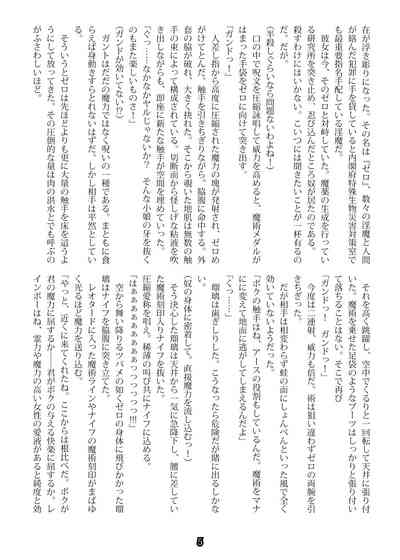 在が浮き彫りになった。その名は『ゼロ』。数々の淫魔と人間
が絡んだ犯罪に手を貸していると内閣府特殊生物災害対策室で
も最重要指名手配している淫魔だ。
彼女は今、そのゼロと対峙していた。魔薬の生成を行ってい
る研究所を突き止め、忍び込んだところ奴が居たのである。
殺すわけにはいかない。こいつには聞きたいことが一杯有るの
だ。だが、
（半殺しぐらいなら問題ないわよね！）
口の中で呪文を圧縮詠唱して威力を高めると、魔術メダルが
はまった手袋をゼロに向けて突き出す。
「ガンドっ！」
人差し指から高度に圧縮された魔力の塊が発射され、ゼロめ
がけてとんだ。触手を引きちぎりながら、脇腹に命中する。外
套の脇が破れ、大きく抉れた。そこから覗いた地肌は無数の触
手の束によって構成されている。切断面から怪しげな粘液を吹
き出しながらも、即座に新たな触手が空間を埋めていった。
「ぐっ……なかなかヤールじゃないか？　そんな小娘の牙を抜く
のもまた楽しいものさ！」
（ガンドが効いてない!?）
ガントはただの魔力ではなく呪いの一種である。まともに食
らえば身動きすらとれないはずだ。しかし相手は平然としてい
る。
そういうとゼロは先ほどよりも更に大量の触手を床を這うよ
うにして放ってきた。その圧倒的な量は肉の洪水とでも呼ぶの
がふさわしいほど。
それを高く跳躍し、空中でくるりと二回転して天井に張り付
いた。魔術を乗せた足袋のようなブーツはしっかりと張り付い
て落ちることはない。そこで再び
「ガンドっ！　ガンドっ！」
今度は二連射。威力も倍だ。術は狙い違わずゼロの両腕を引
きちぎった。
だが相手は相変わらず蛙の面にしょんべんといった風で全く
効いていないようだった。
「ボクの触手はね、アースの役割もしているんだ。魔術をマナ
に変えて地面に逃がしてしまえるんだよ」
「くっ……」
瑠璃は歯ぎしりした。こうなったら危険だが賭に出るしかな
い。
（奴の身体に密着して、直接魔力を流し込むっ！）
そう決心した瑠璃は天井から一気に急降下し、腰に差してい
た魔術刻印入りナイフを抜いた。
圧縮愛称を唱え、裂薄の叫び共にナイフに込める。
「はぁああああぁぁぁぁっつつつつっ!!!」
空から舞い降りるツバメの如くゼロの身体に飛びかかった瑠
璃はナイフを脇腹に突き立てた。
レオタードに入った魔術ラインやナイフの魔術刻印がまばゆ
く光るほど魔力を送り込む。
「やっと、近くに来てくれたね。ここからは根比べだ。ボクが
君の魔力に屈するか！　君がボクの与える快楽に屈するか。レ
インボーはね、霊力や魔力の高い女性の愛液があると純度と効
5